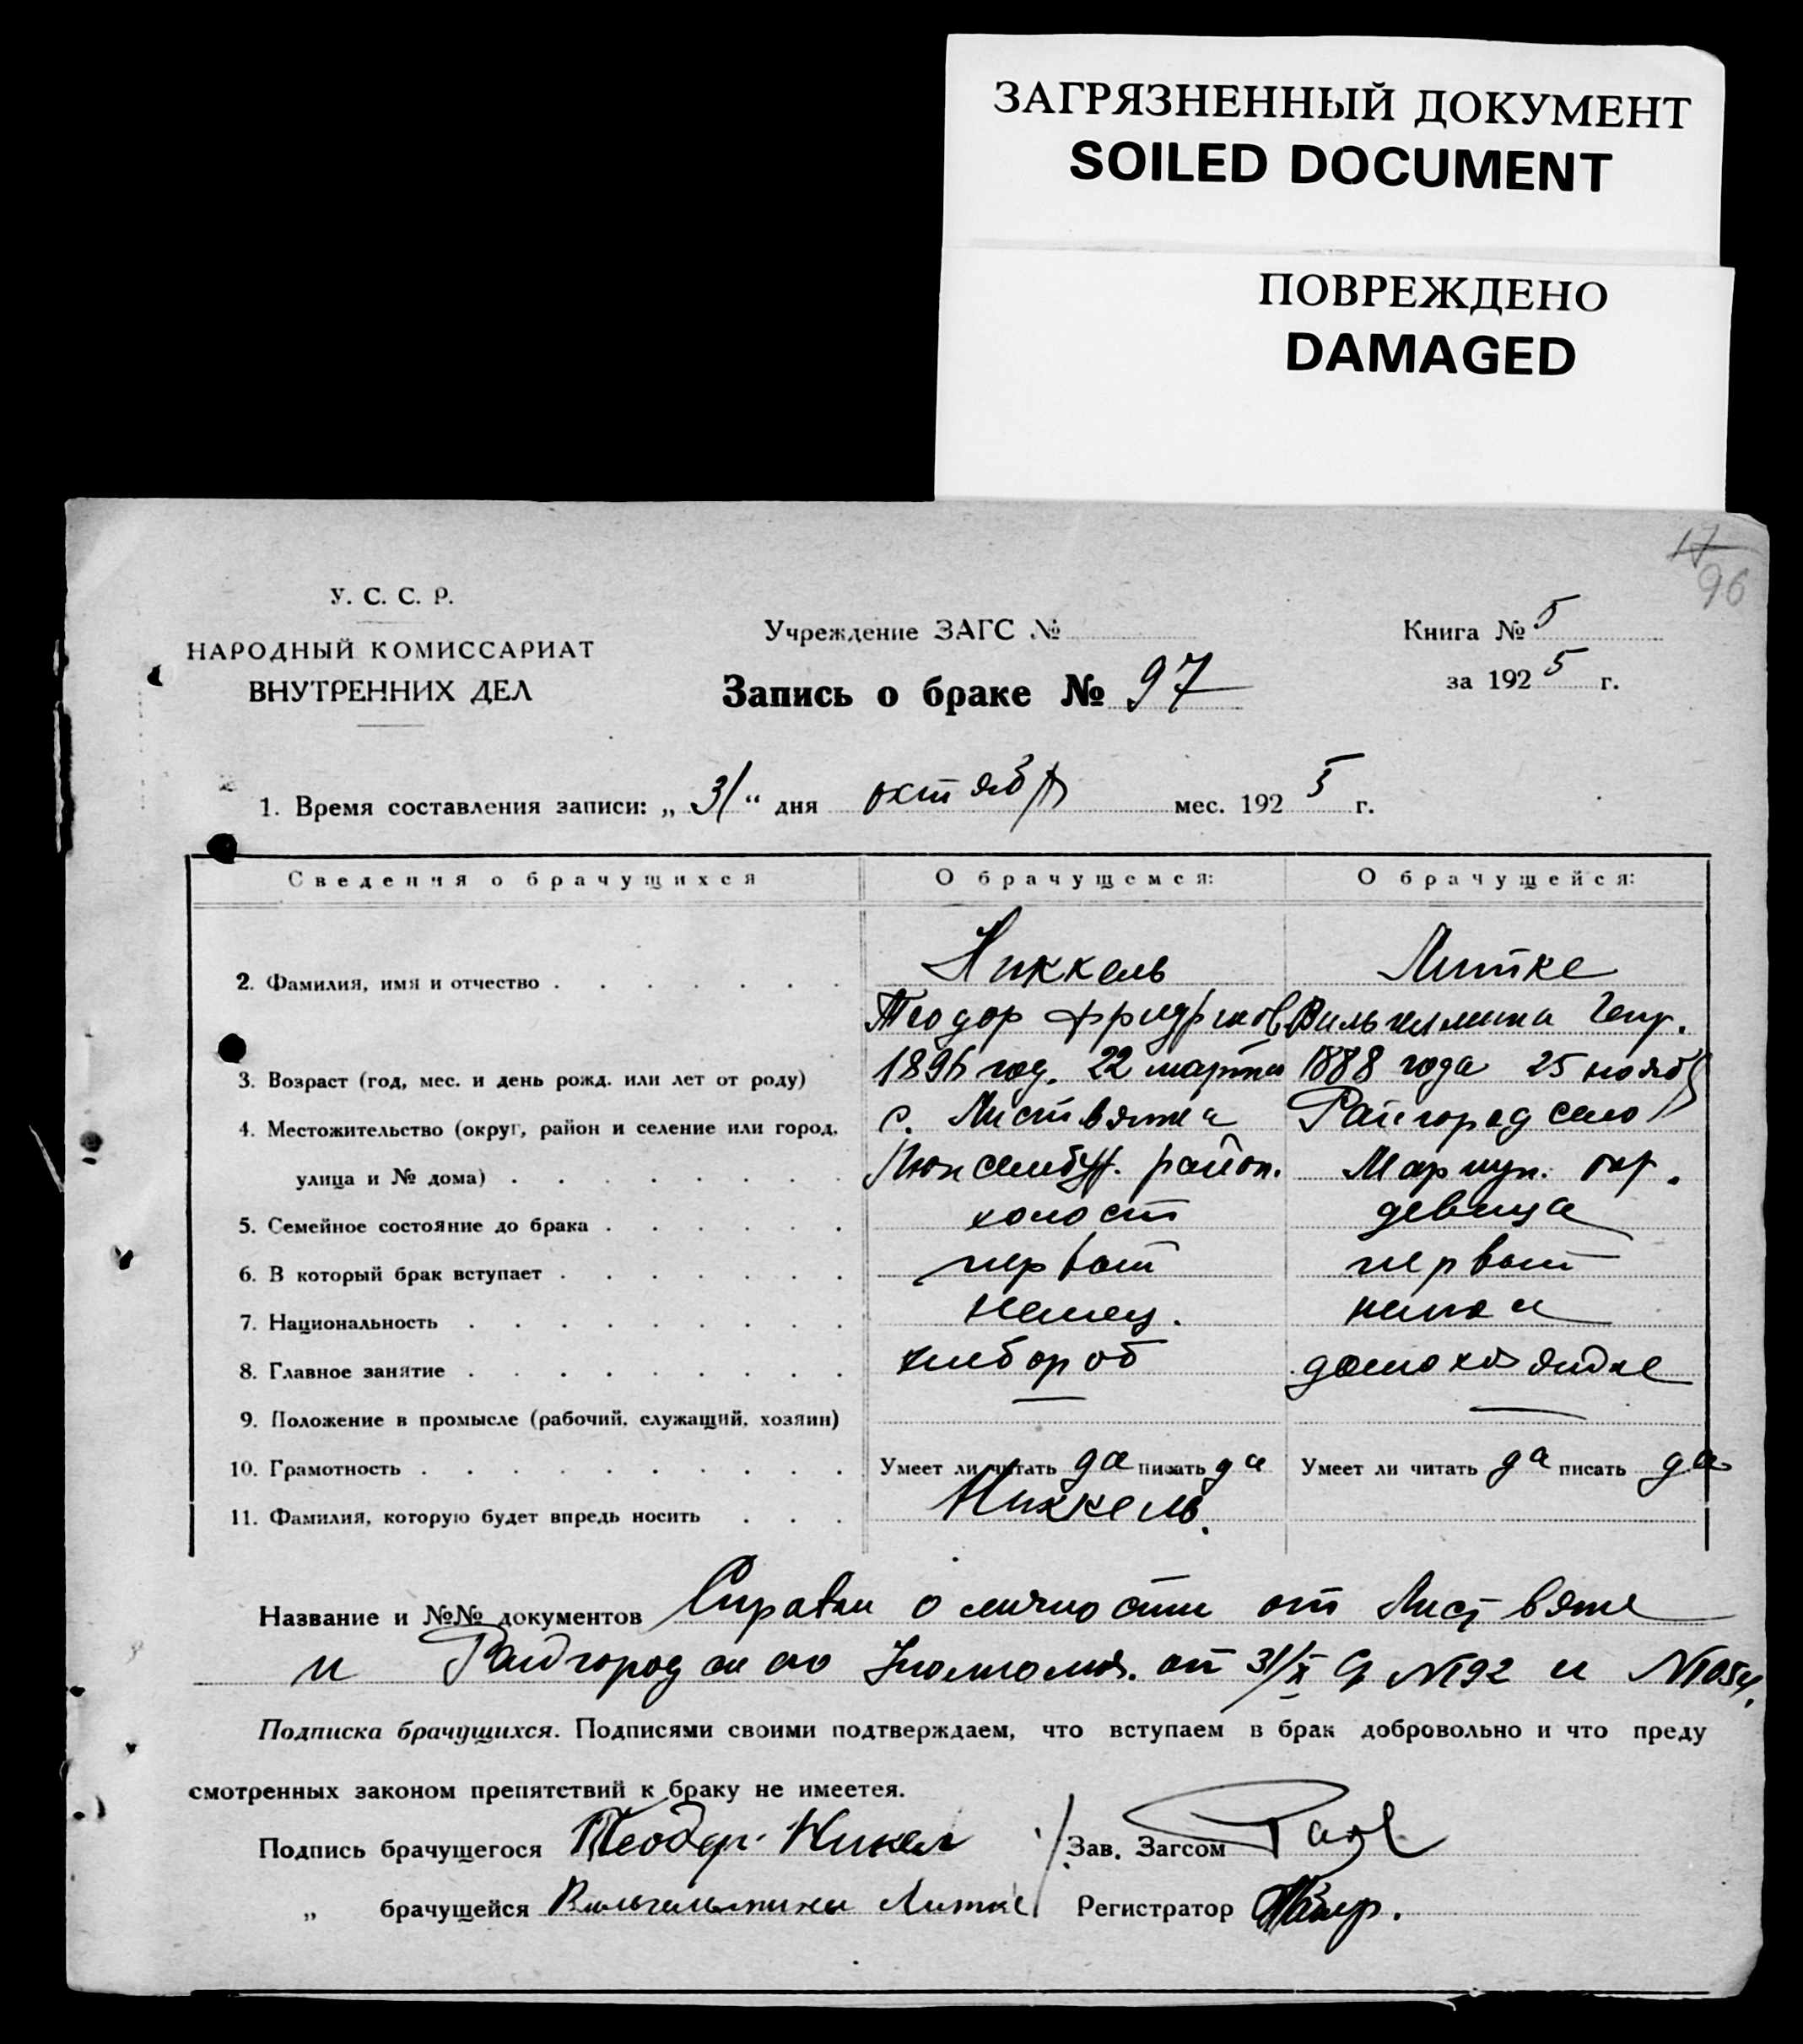 ЗАГРЯЗНЕННЫЙ ДОКУМЕНТ
SOILED DOCUMENT
ПОВРЕЖДЕНО
DAMAGED
17
96
У. С. С. Р.
НАРОДНЫЙ КОМИССАРИАТ
ВНУТРЕННИХ ДЕЛ
Учреждение ЗАГС №
Запись о браке № 97
Книга № 5
за 1925 г.
1. Время составления записи: „ 31 “ дня октября мес. 1925 г.
Сведения о брачущихся О брачущемся: О брачущейся:
2. Фамилия, имя и отчество Никкель Литке
Теодор Фридрихов Вильгельмина Генр.
3. Возраст (год, мес. и день рожд. или лет от роду) 1896 год. 22 марта 1888 года 25 нояб
4. Местожительство (округ, район и селение или город, с. Листвянка Райгород село
улица и № дома) район. Мариуп. окр.
5. Семейное состояние до брака холост девица
6. В который брак вступает первый первый
7. Национальность немец. немка
8. Главное занятие хлебороб домохозяйка
9. Положение в промысле (рабочий, служащий, хозяин) — —
10. Грамотность Умеет ли читать да писать да Умеет ли читать да писать да
11. Фамилия, которую будет впредь носить Никкель.
Название и №№ документов Справки о личности от Листвян
и Райгородского от 31/X № 92 и № 1054.
Подписка брачущихся. Подписями своими подтверждаем, что вступаем в брак добровольно и что преду
смотренных законом препятствий к браку не имеется.
Подпись брачущегося Теодор Никел Зав. Загсом
„ брачущейся Вильгельмина Литке Регистратор